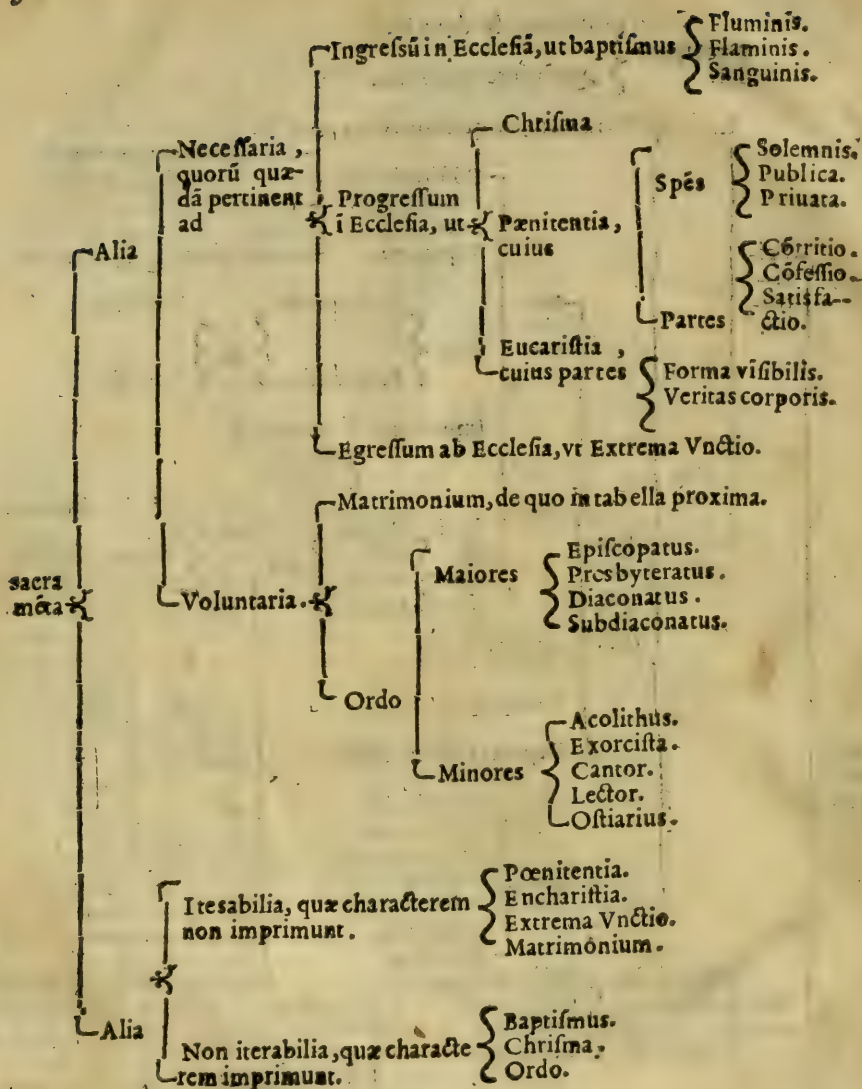 Ingreſsũ in Eccleſiã, ut baptiſmus
Fluminis.
Flaminis.
Sanguinis.
Neceſſaria,
quorũ quæ-
dã pertinent
ad
Progreſſum
ĩ Eccleſia, ut
Chriſma
Pænitentia,
cuius
Spẽs
Solemnis.
Publica.
Priuata.
Partes
Cõrritio.
Cõfeſſio.
Satisfa--
ctio.
Eucariſtia,
cuius partes
Forma viſibilis.
Veritas corporis.
Egreſſum ab Eccleſia, vt Extrema Vnctio.
Alia
sacra
mẽta
Voluntaria.
Matrimonium, de quo in tabella proxima.
Ordo
Maiores
Epiſcopatus.
Presbyteratus.
Diaconatus.
Subdiaconatus.
Minores
Acolithus.
Exorciſta.
Cantor.
Lector.
Oſtiarius.
Alia
Itesabilia, quæ characterem
non imprimunt.
Pœnitentia.
Enchariſtia.
Extrema Vnctio.
Matrimonium.
Non iterabilia, quæ characte
rem imprimunt.
Baptiſmus.
Chriſma.
Ordo.